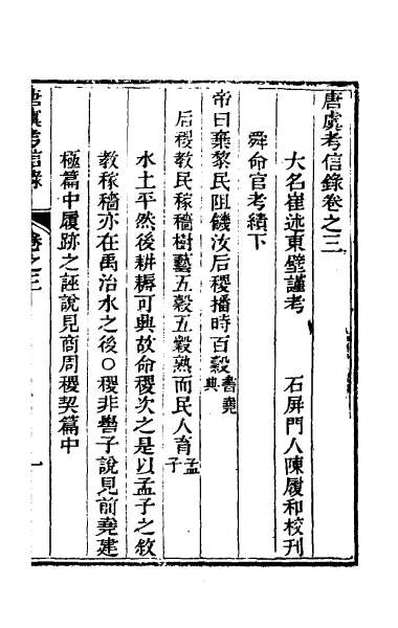 唐虞考信錄卷之三
大名崔述東壁謹考　石屏門人陳履和校刊
舜命官考績下
帝曰棄黎民阻饑汝后稷播時百穀書堯典
后稷教民稼穡樹藝五穀五穀熟而民人育孟子
水土平然後耕耨可興故命稷次之是以孟子之敘
教稼穡亦在禹治水之後○稷非嚳子說見前堯建
極篇中履跡之誣說見商周稷契篇中
唐虞考信錄
卷之三
一